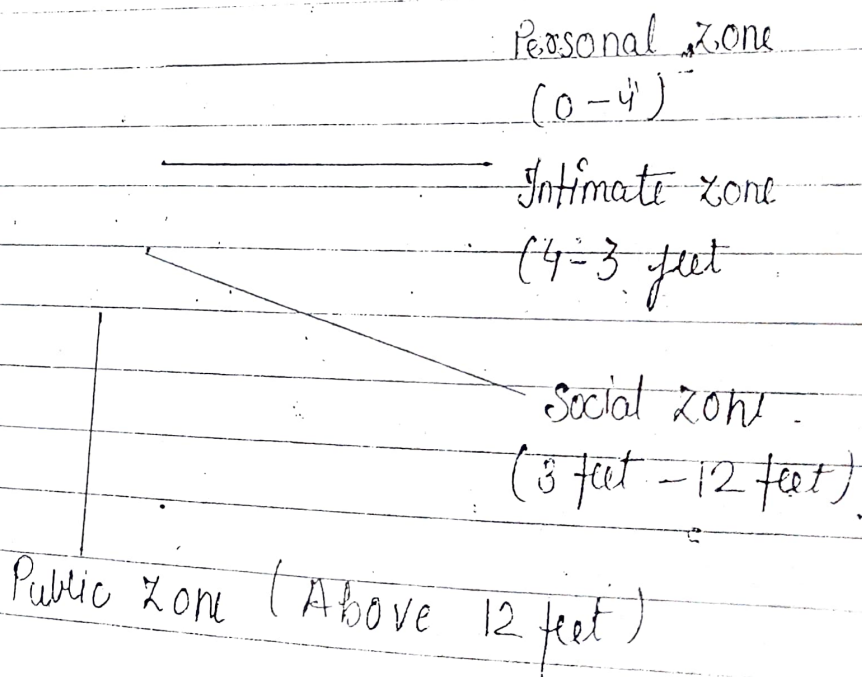 Personal zone
(0-4")
Intimate zone
(4-3 feet
Social zone.
(3 feet - 12 feet)
Public zone (Above 12 feet)